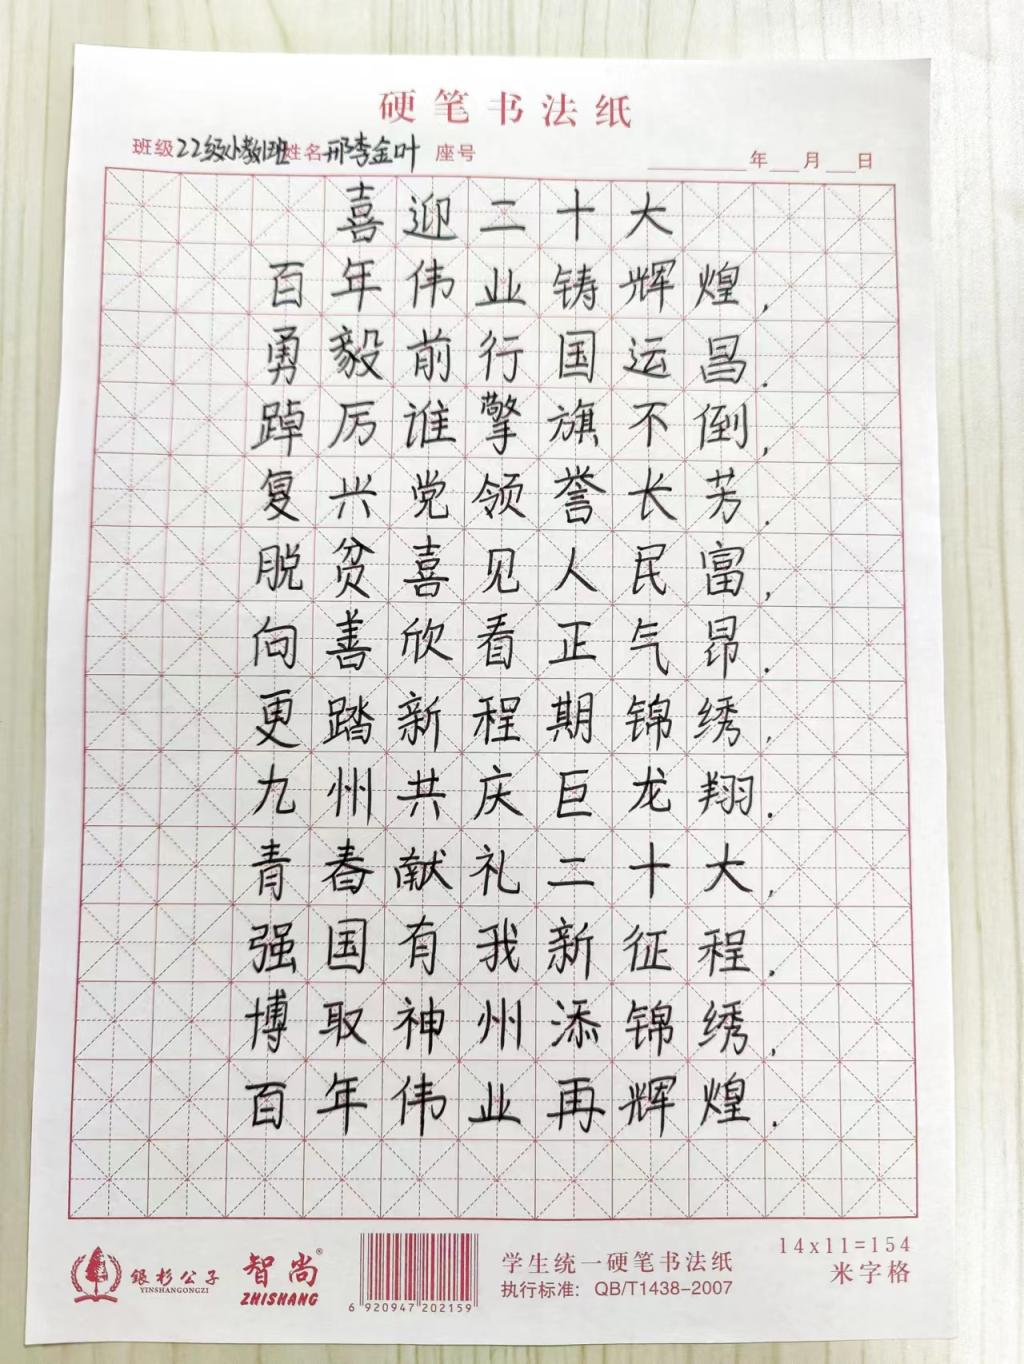 硬笔书法纸
班级 22级小教1班 姓名 邢李金叶 座号 年 月 日
喜迎二十大
百年伟业铸辉煌,
勇毅前行国运昌.
踔厉谁擎旗不倒,
复兴党领誉长芳.
脱贫喜见人民富,
向善欣看正气昂.
更踏新程期锦绣,
九州共庆巨龙翔.
青春献礼二十大,
强国有我新征程.
博取神州添锦绣,
百年伟业再辉煌.
银杉公子
YINSHANGONGZI
智尚®
ZHISHANG
6 920947 202159
学生统一硬笔书法纸
执行标准: QB/T1438-2007
14x11=154
米字格